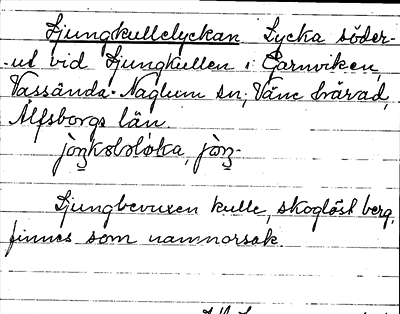 Ljungkullelyckan Lycka söder-
-ut vid Ljungkullen i Garnviken,
Vassända-Naglum sn, Väne härad,
Älfsborgs län.
Ljungbevuxen kulle, skoglöst berg,
finnes som namnorsak.